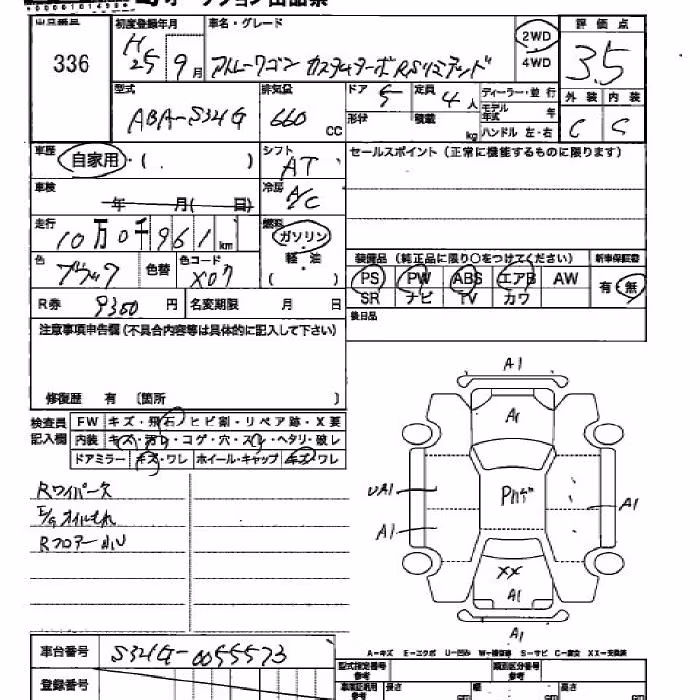 オークション出品票
出品番号
336
初度登録年月
H25 9月
車名・グレード
アルトワゴン カスタムターボRSリミテッド
2WD
4WD
評価点
3.5
外装 内装
C C
型式
ABA-S32G
排気量
660 CC
ドア 5
定員 4人
形状
積載 kg
ディーラー・並行
モデル年式 年
ハンドル 左・右
車歴
自家用・( )
シフト
AT
セールスポイント(正常に機能するものに限ります)
車検
年 月( 日)
冷房
A/C
走行
10万0千961km
燃料
ガソリン
軽・油
( )
色
ブラック
色替
色コード
X07
装備品(純正品に限り○をつけてください)
新車保証書
PS PW ABS エアB AW
有・無
SR ナビ TV カワ
R券 9360円
名変期限 月 日
後日品
注意事項申告欄(不具合内容等は具体的に記入して下さい)
修復歴 有 〔箇所 〕
検査員記入欄
FW キズ・飛石・ヒビ割・リペア跡・X要
内装 キズ・汚レ・コゲ・穴・スレ・ヘタリ・破レ
ドアミラー キズ・ワレ ホイール・キャップ キズ・ワレ
Rワイパー欠
E/gオイルもれ
RフロアーAU
A1
A1
UA1
Pハゲ
A1
A1
XX
A1
A1
A-キズ E-エクボ U-凹み W-補修跡 S-サビ C-腐食 XX-交換済
車台番号 S32G-0055573
登録番号
型式指定番号
参考
類別区分番号
参考
車庫証明用
参考
長さ
幅
高さ